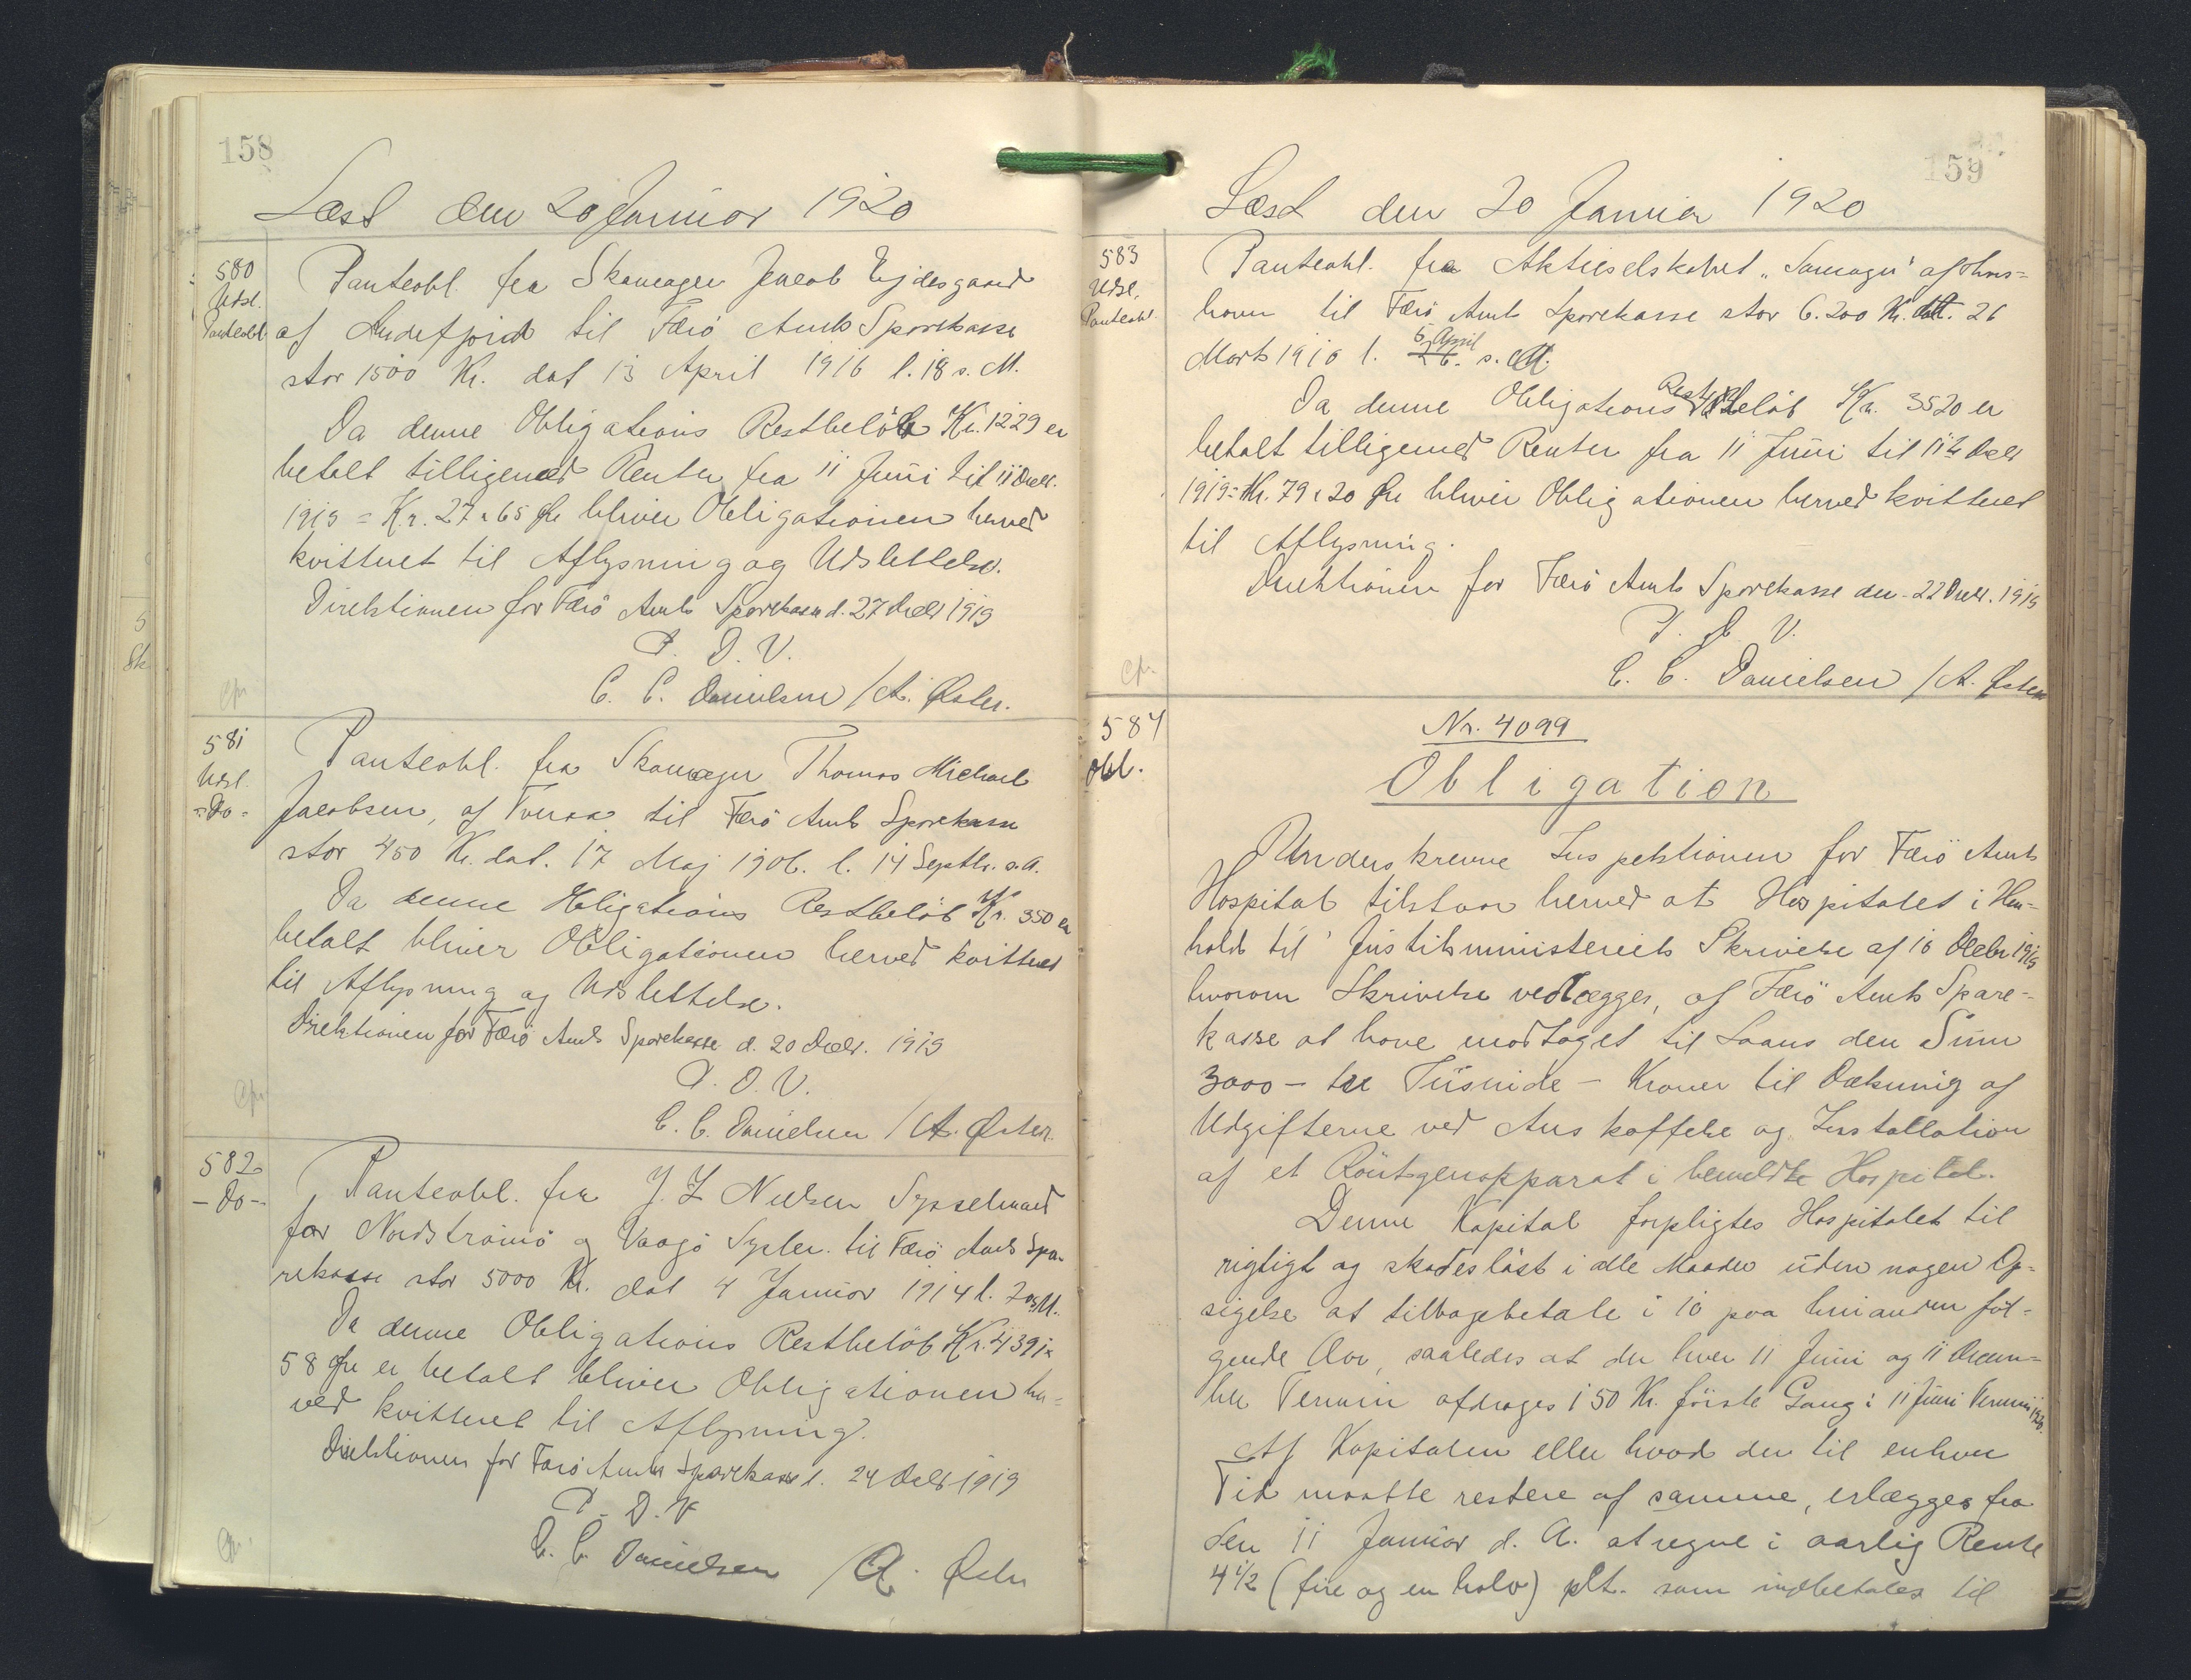 158
Læst den 20 Januar 1920
580
Udsl.
Panteobl.
Panteobl. fra Skomager Jacob Ejdesgaard
af Andefjord til Færö Amts Sparekasse
stor 1500 Kr. dat 13 April 1916 l. 18 s. M.
Da denne Obligations Restbelöb Kr. 1229 er
betalt tilligemed Renter fra 11 Juni til 11 Decbr.
1919 = Kr. 27 " 65 Øre bliver Obligationen herved
kvitteret til Aflysning og Udslettelse.
Direktionen for Færö Amts Sparekasse d. 27 Decbr 1919
P. D. V.
C. C. Danielsen / A. Øster.
581
Udsl.
- Do -
Panteobl. fra Skomager Thomas Michael
Jacobsen, af Tveraa til Færö Amts Sparekasse
stor 450 Kr. dat. 17 Maj 1906. l. 14 Septbr. s. A.
Da denne Obligations Restbelöb Kr. 350 er
betalt bliver Obligationen herved kvitteret
til Aflysning og Udslettelse.
Direktionen for Færö Amts Sparekasse d. 20 Decbr. 1919
P. D. V.
C. C. Danielsen / A. Øster.
582
- Do -
Panteobl. fra J. L. Nielsen Sysselmand
for Nordströmö og Vaagö Sysler. til Færö Amts Spa-
rekasse stor 5000 Kr. dat 4 Januar 1914 l. 7 s M.
Da denne Obligations Restbelöb Kr. 4391"
58 Øre er betalt bliver Obligationen her-
ved kvitteret til Aflysning.
Direktionen for Færö Amts Sparekasse d. 24 Decbr 1919
P. D. V
C. C. Danielsen / A. Øster
159
Læst den 20 Januar 1920
583
Udsl.
Panteobl.
Panteobl. fra Aktieselskabet af Thors-
havn til Færö Amts Sparekasse stor 6.200 Kr. dat. 26
Marts 1910 l. 5 April 26. s. A.
Da denne Obligations Restbelöb Kr. 3520 er
betalt tilligemed Renter fra 11 Juni til 11te Decbr
1919 = Kr. 79 " 20 Øre bliver Obligationen herved kvitteret
til Aflysning.
Direktionen for Færö Amts Sparekasse den 22 Decbr. 1919
P. D. V.
C. C. Danielsen / A. Øster
584
Obl.
Nr. 4099
Obligation
Underskrevne Inspektionen for Færö Amts
Hospital tilstaar herved at Hospitalet i Hen-
hold til Justitsministeriets Skrivelse af 10 Decbr 1919
hvorom Skrivelse vedlægges, af Færö Amts Spare-
kasse at have modtaget til Laans den Sum
3000 - tre Tusinde - Kroner til Dækning af
Udgifterne ved Anskaffelse og Installation
af et Röntgenapparat i bemeldte Hospital.
Denne Kapital forpligtes Hospitalet til
rigtigt og skadeslöst i alle Maader uden nogen Op-
sigelse at tilbagebetale i 10 paa hinanden föl-
gende Aar, saaledes at der hver 11 Juni og 11 Decem-
ber Termin afdrages 150 Kr. förste Gang i 11 Juni Termin 1920.
Af Kapitalen eller hvad der til enhver
Tid maatte restere af samme, erlægges fra
den 11 Januar d. A. at regne i aarlig Rente
4 1/2 (fire og en halv) pCt. som indbetales til